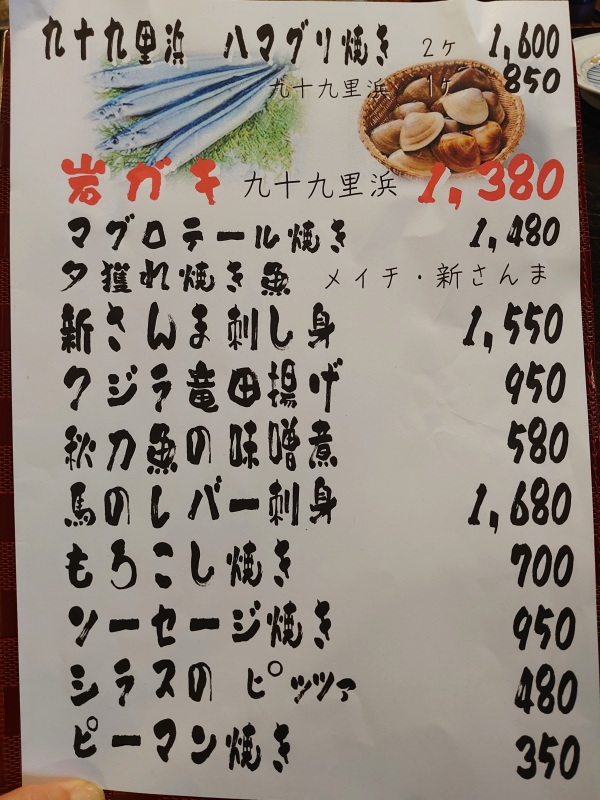 九十九里浜 ハマグリ焼き 2ケ 1,600
九十九里浜 1ケ 850
岩ガキ 九十九里浜 1,380
マグロテール焼き 1,480
夕獲れ焼き魚 メイチ・新さんま
新さんま刺し身 1,550
クジラ竜田揚げ 950
秋刀魚の味噌煮 580
馬のレバー刺身 1,680
もろこし焼き 700
ソーセージ焼き 950
シラスの ピッツァ 480
ピーマン焼き 350